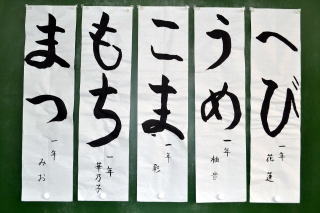 へび
一年 花蓮
うめ
一年 柚昔
こま
一年 彩
もち
一年 華乃子
まつ
一年 みお